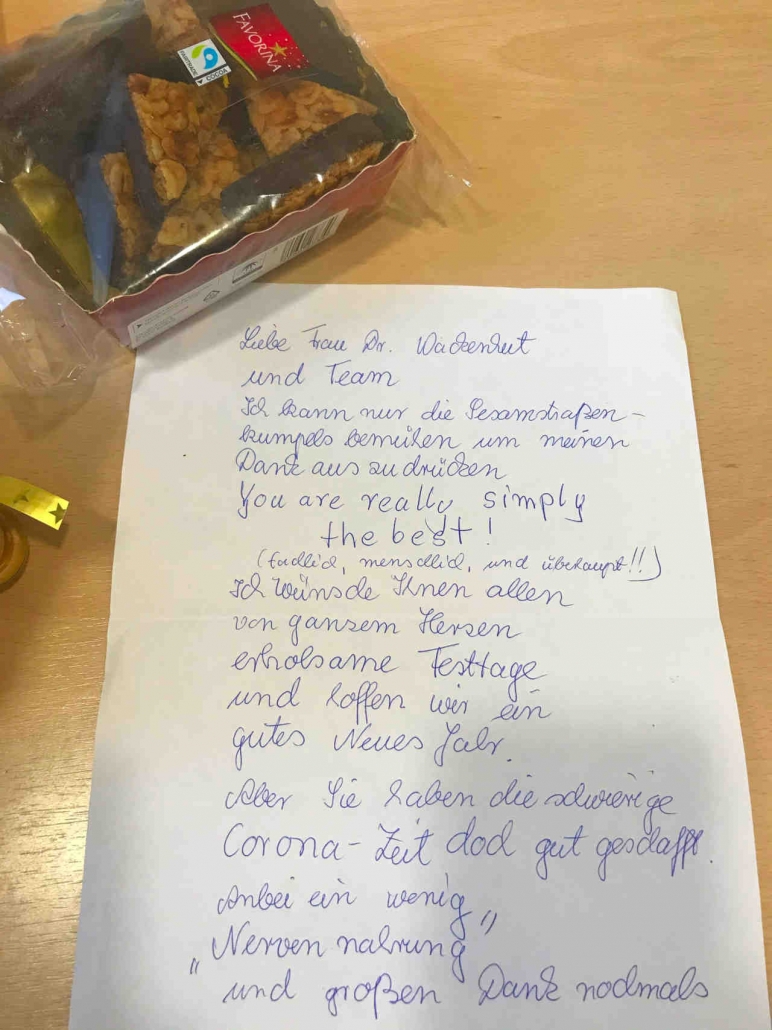 FAVORINA
FAIRTRADE
COCOA
Liebe Frau Dr. Wackenhut
und Team
Ich kann nur die Sesamstraßen-
kumpels bemühen um meinen
Dank aus zu drücken
You are really simply
the best!
(fachlich, menschlich, und überhaupt!!)
Ich wünsche Ihnen allen
von ganzem Herzen
erholsame Festtage
und hoffen wir ein
gutes Neues Jahr.
Aber Sie haben die schwierige
Corona-Zeit doch gut geschafft.
Anbei ein wenig
„Nerven nahrung"
und großen Dank nochmals